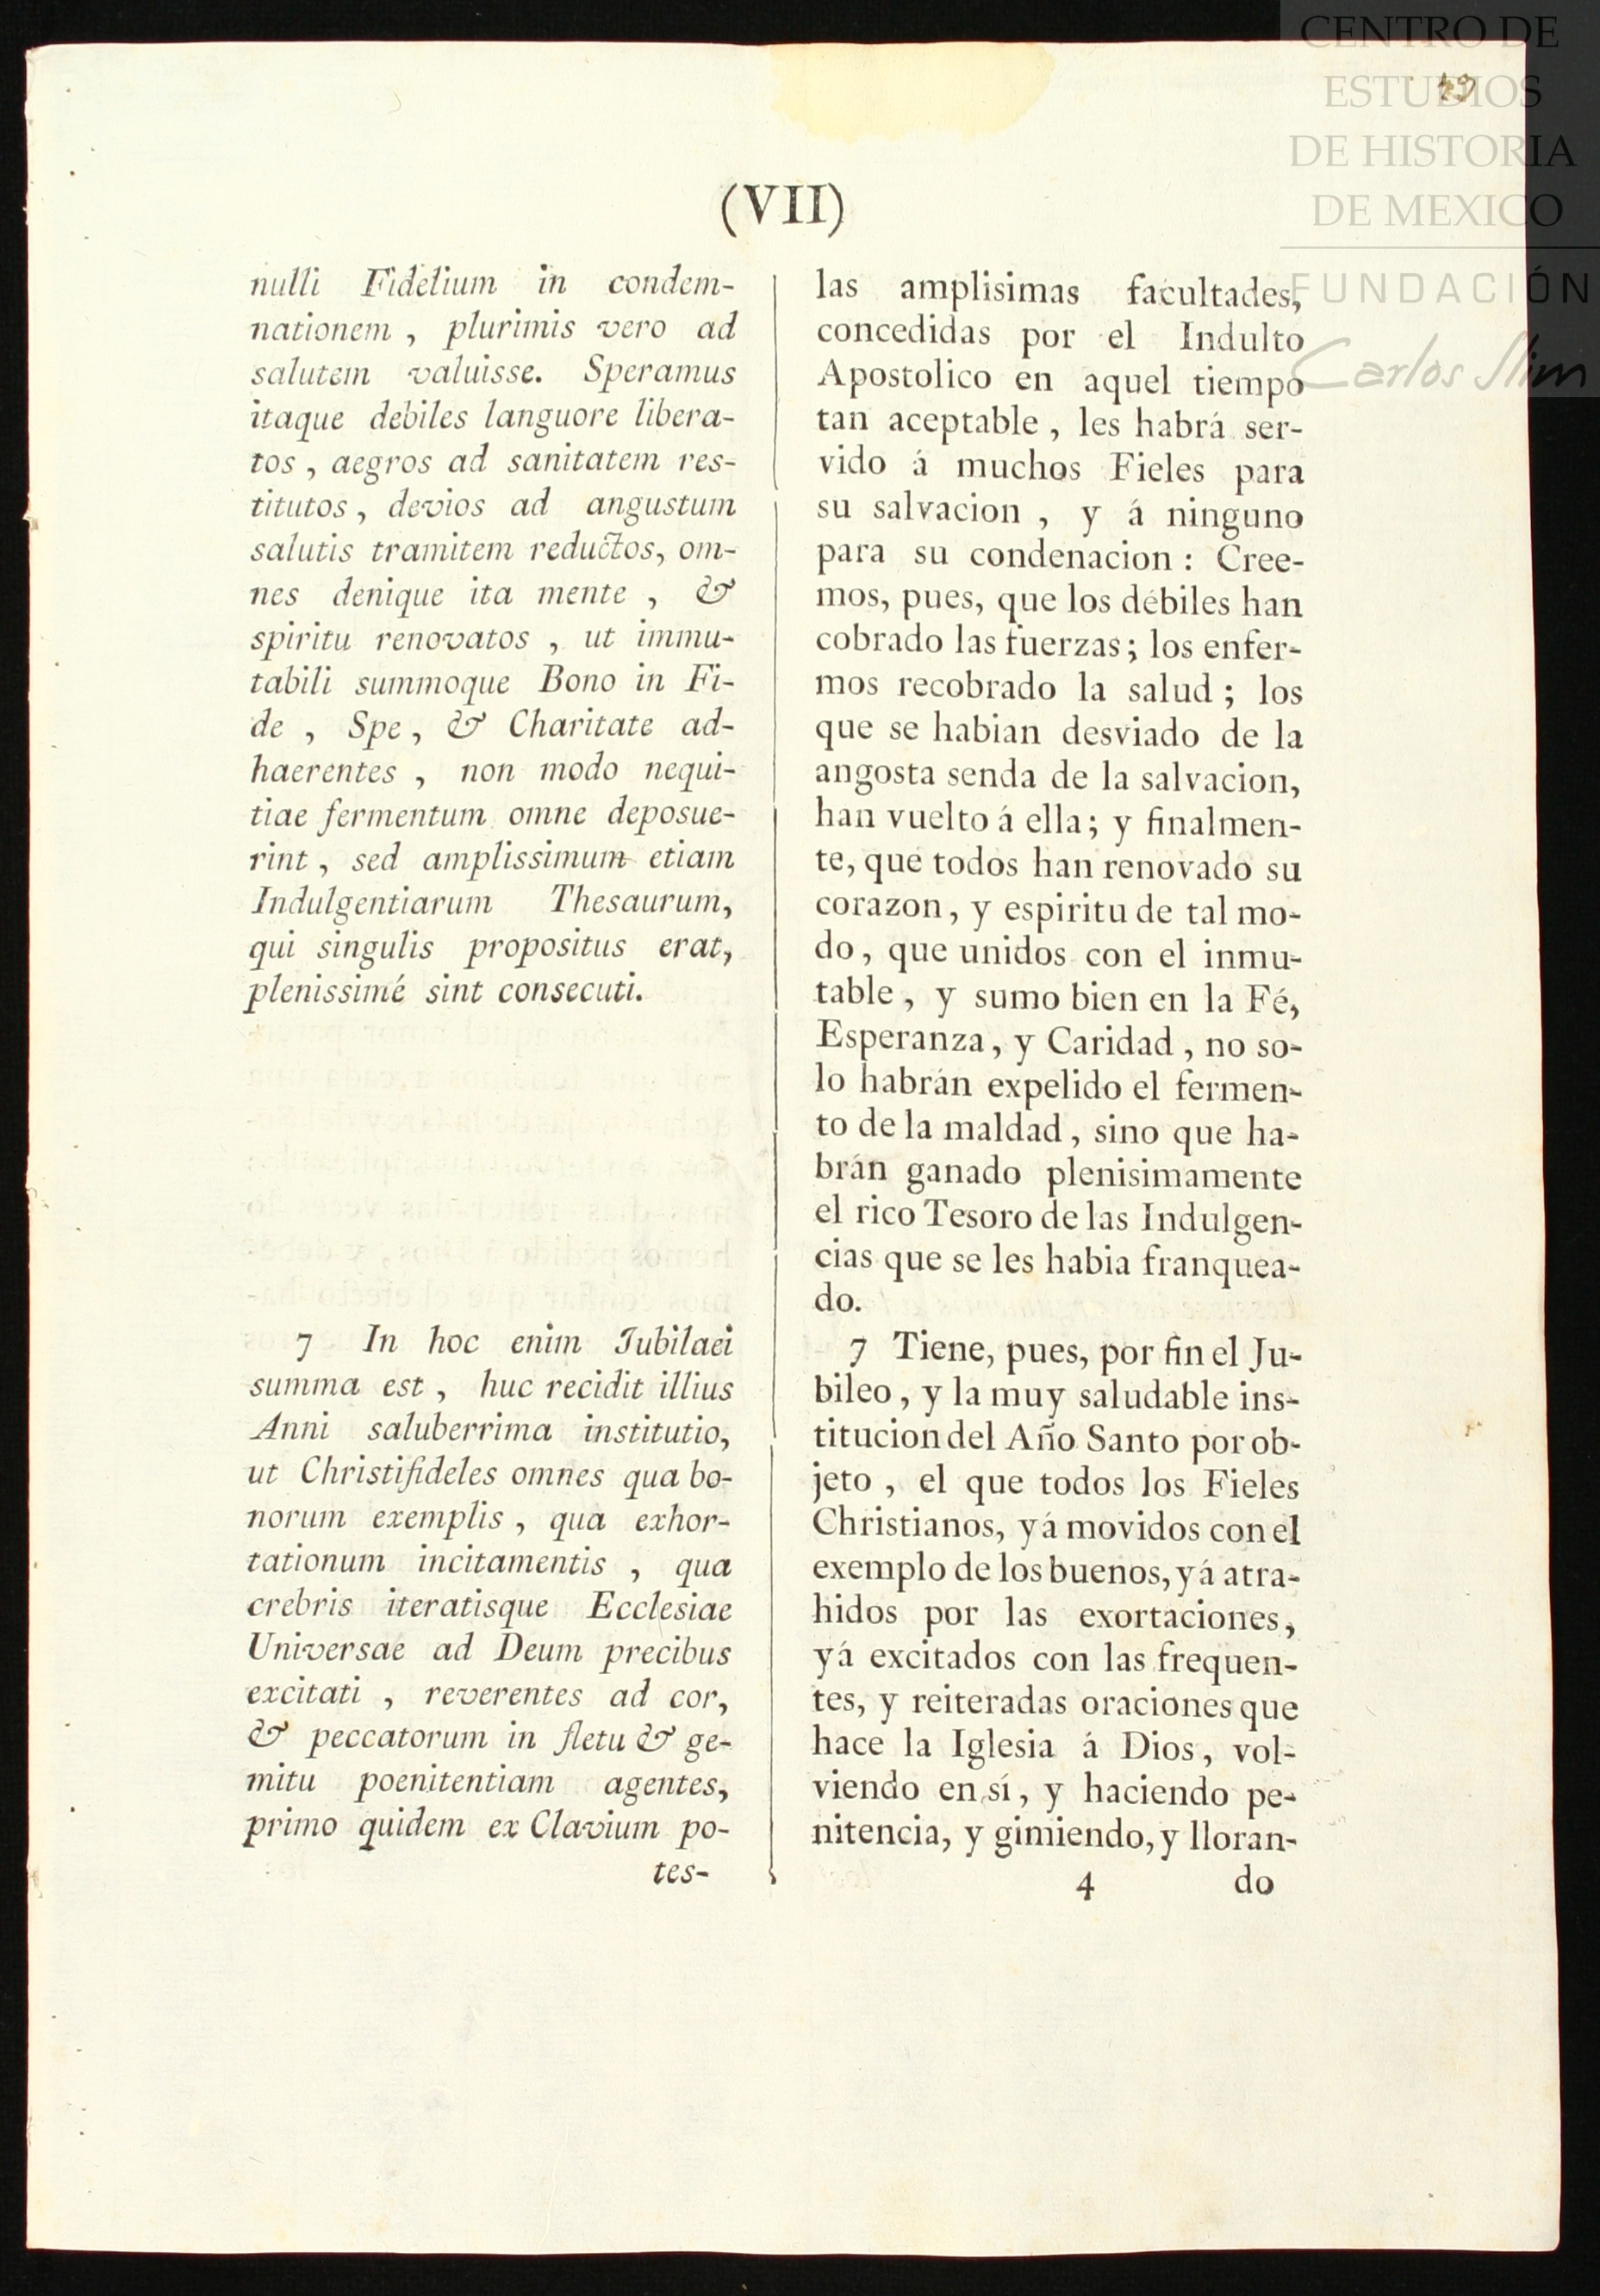 CENTRO DE
ESTUDIOS
DE HISTORIA
DE MEXICO
FUNDACIÓN
Carlos Slim
(VII)
nulli Fidelium in condem-
nationem , plurimis vero ad
salutem valuisse. Speramus
itaque debiles languore libera-
tos , aegros ad sanitatem res-
titutos , devios ad angustum
salutis tramitem reductos, om-
nes denique ita mente , &
spiritu renovatos , ut immu-
tabili summoque Bono in Fi-
de , Spe , & Charitate ad-
haerentes , non modo nequi-
tiae fermentum omne deposue-
rint , sed amplissimum etiam
Indulgentiarum Thesaurum,
qui singulis propositus erat,
plenissimé sint consecuti.
7 In hoc enim Iubilaei
summa est , huc recidit illius
Anni saluberrima institutio,
ut Christifideles omnes qua bo-
norum exemplis , qua exhor-
tationum incitamentis , qua
crebris iteratisque Ecclesiae
Universae ad Deum precibus
excitati , reverentes ad cor,
& peccatorum in fletu & ge-
mitu poenitentiam agentes,
primo quidem ex Clavium po-
tes-
las amplisimas facultades,
concedidas por el Indulto
Apostolico en aquel tiempo
tan aceptable , les habrá ser-
vido á muchos Fieles para
su salvacion , y á ninguno
para su condenacion : Cree-
mos, pues, que los débiles han
cobrado las fuerzas ; los enfer-
mos recobrado la salud ; los
que se habian desviado de la
angosta senda de la salvacion,
han vuelto á ella; y finalmen-
te, que todos han renovado su
corazon, y espiritu de tal mo-
do , que unidos con el inmu-
table , y sumo bien en la Fé,
Esperanza, y Caridad , no so-
lo habrán expelido el fermen-
to de la maldad , sino que ha-
brán ganado plenisimamente
el rico Tesoro de las Indulgen-
cias que se les habia franquea-
do.
7 Tiene, pues, por fin el Ju-
bileo , y la muy saludable ins-
titucion del Año Santo por ob-
jeto , el que todos los Fieles
Christianos, yá movidos con el
exemplo de los buenos, yá atra-
hidos por las exortaciones,
yá excitados con las frequen-
tes, y reiteradas oraciones que
hace la Iglesia á Dios, vol-
viendo en sí, y haciendo pe-
nitencia, y gimiendo, y lloran-
4 do